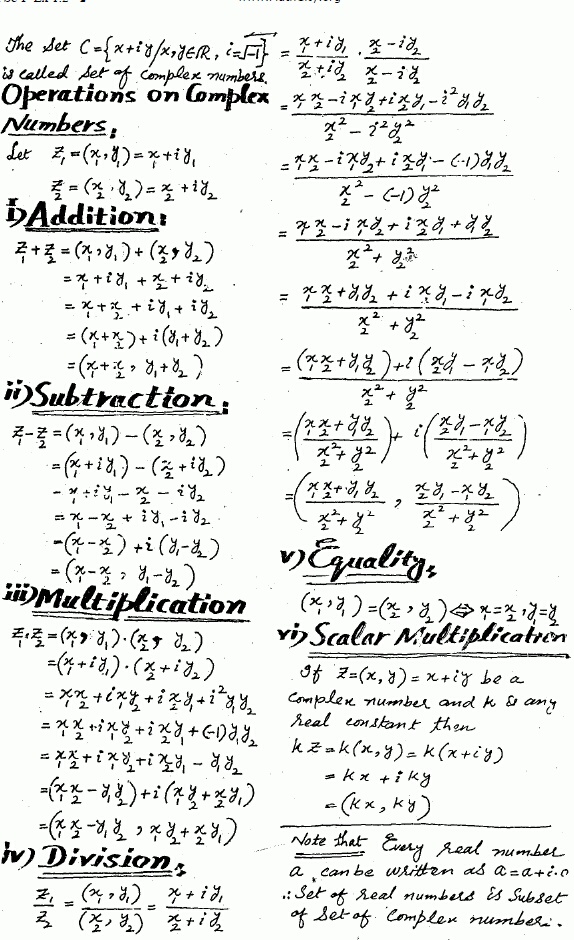 The Set C={x+iy/x,y∈R, i=√-1}
is called Set of complex numbers.
Operations on Complex
Numbers:
Let z₁=(x₁,y₁)=x₁+iy₁
z₂=(x₂,y₂)=x₂+iy₂
i) Addition:
z₁+z₂=(x₁,y₁)+(x₂,y₂)
=x₁+iy₁+x₂+iy₂
=x₁+x₂+iy₁+iy₂
=(x₁+x₂)+i(y₁+y₂)
=(x₁+x₂, y₁+y₂)
ii) Subtraction:
z₁-z₂=(x₁,y₁)-(x₂,y₂)
=(x₁+iy₁)-(x₂+iy₂)
=x₁+iy₁-x₂-iy₂
=x₁-x₂+iy₁-iy₂
=(x₁-x₂)+i(y₁-y₂)
=(x₁-x₂, y₁-y₂)
iii) Multiplication
z₁.z₂=(x₁,y₁).(x₂,y₂)
=(x₁+iy₁).(x₂+iy₂)
=x₁x₂+ix₁y₂+ix₂y₁+i²y₁y₂
=x₁x₂+ix₁y₂+ix₂y₁+(-1)y₁y₂
=x₁x₂+ix₁y₂+ix₂y₁-y₁y₂
=(x₁x₂-y₁y₂)+i(x₁y₂+x₂y₁)
=(x₁x₂-y₁y₂, x₁y₂+x₂y₁)
iv) Division:
z₁/z₂=(x₁,y₁)/(x₂,y₂)=x₁+iy₁/x₂+iy₂
=x₁+iy₁/x₂+iy₂ . x₂-iy₂/x₂-iy₂
=x₁x₂-ix₁y₂+ix₂y₁-i²y₁y₂/x₂²-i²y₂²
=x₁x₂-ix₁y₂+ix₂y₁-(-1)y₁y₂/x₂²-(-1)y₂²
=x₁x₂-ix₁y₂+ix₂y₁+y₁y₂/x₂²+y₂²
=x₁x₂+y₁y₂+ix₂y₁-ix₁y₂/x₂²+y₂²
=(x₁x₂+y₁y₂)+i(x₂y₁-x₁y₂)/x₂²+y₂²
=(x₁x₂+y₁y₂/x₂²+y₂²)+i(x₂y₁-x₁y₂/x₂²+y₂²)
=(x₁x₂+y₁y₂/x₂²+y₂², x₂y₁-x₁y₂/x₂²+y₂²)
v) Equality:
(x₁,y₁)=(x₂,y₂)⇔x₁=x₂,y₁=y₂
vi) Scalar Multiplication
If z=(x,y)=x+iy be a
complex number and k is any
real constant then
kz=k(x,y)=k(x+iy)
=kx+iky
=(kx,ky)
Note that Every real number
a can be written as a=a+i.0
∴Set of real numbers is Subset
of Set of Complex number.